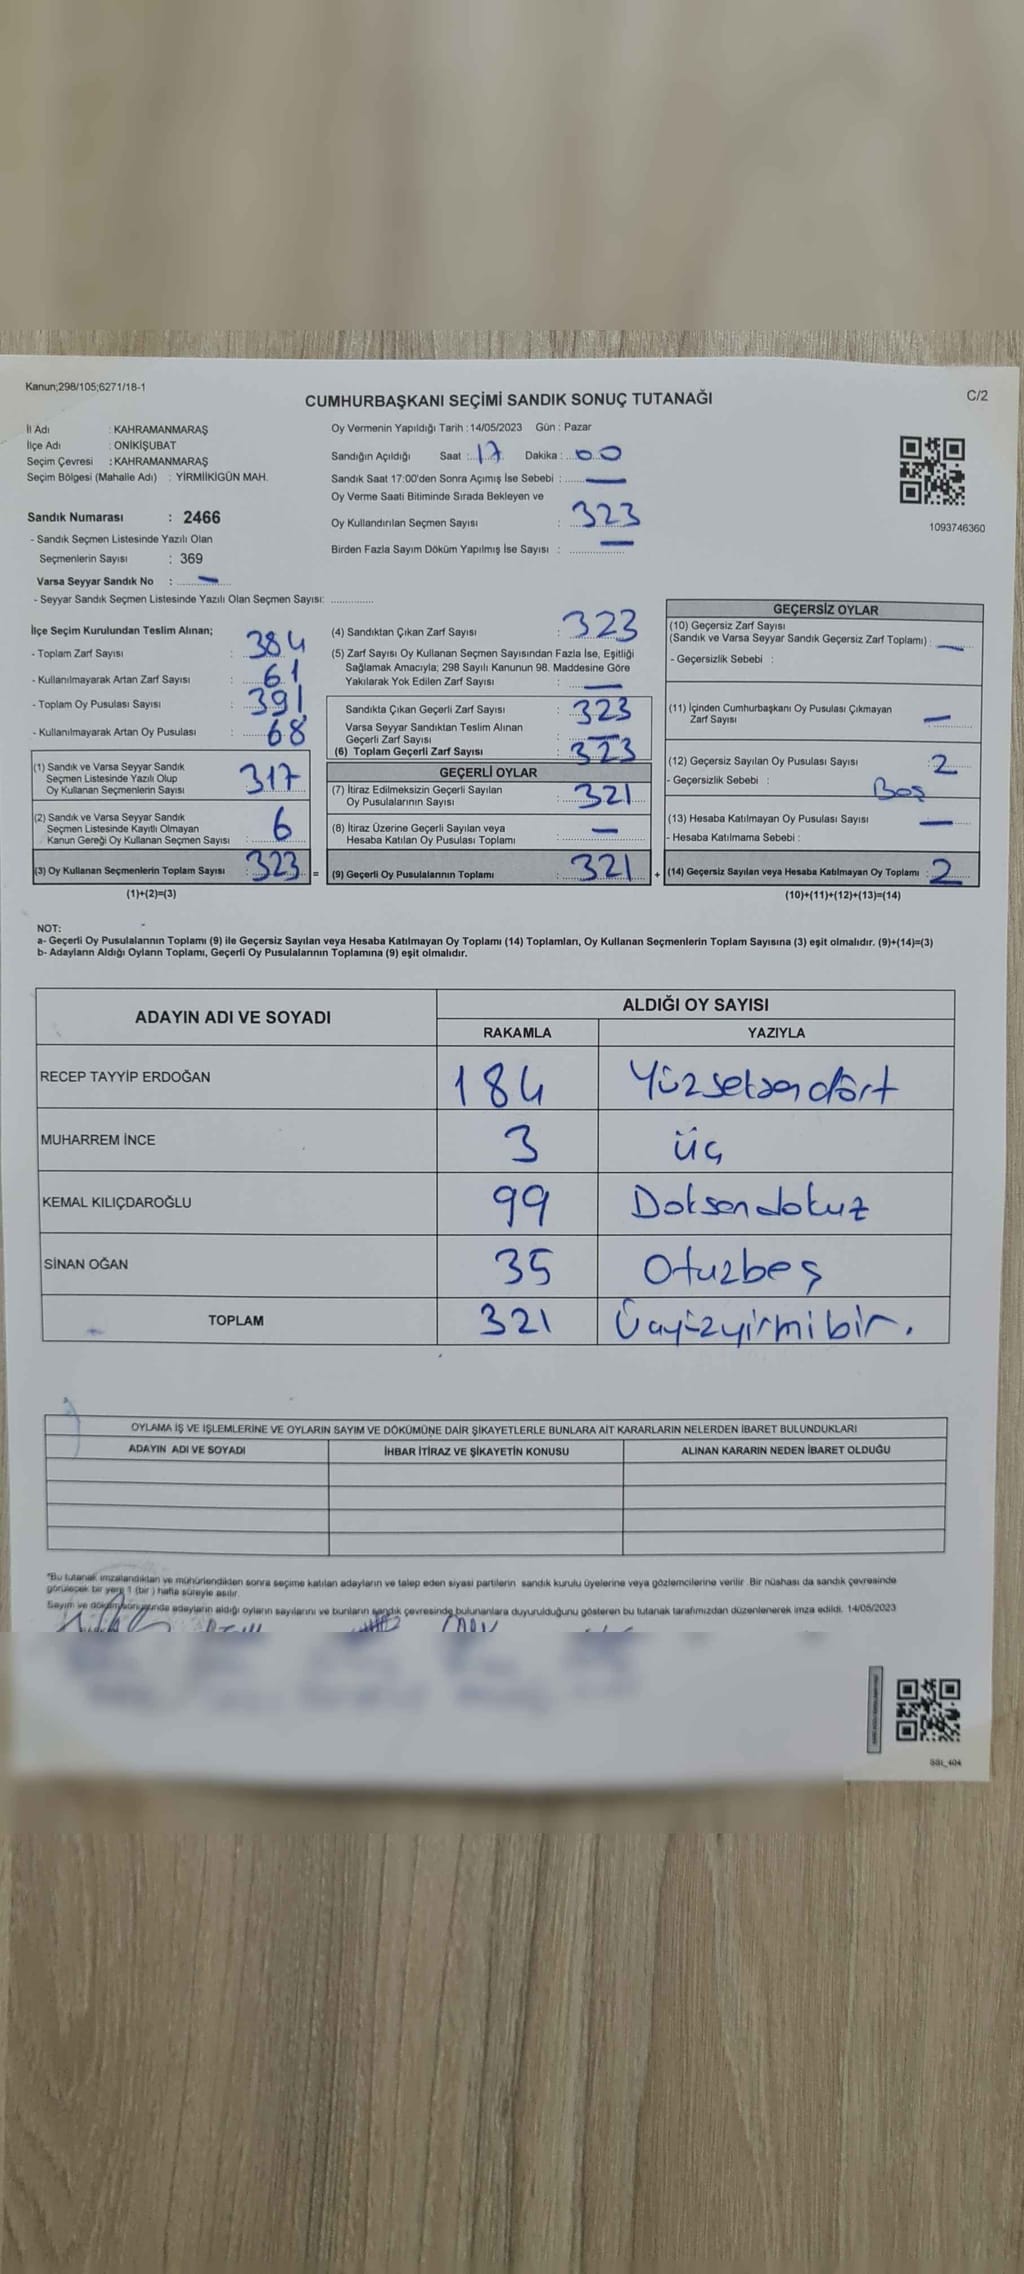 Kanun;298/105;6271/18-1
C/2
CUMHURBAŞKANI SEÇİMİ SANDIK SONUÇ TUTANAĞI
İl Adı : KAHRAMANMARAŞ
İlçe Adı : ONİKİŞUBAT
Seçim Çevresi : KAHRAMANMARAŞ
Seçim Bölgesi (Mahalle Adı) : YİRMİİKİGÜN MAH.
Sandık Numarası : 2466
- Sandık Seçmen Listesinde Yazılı Olan
Seçmenlerin Sayısı : 369
Varsa Seyyar Sandık No : —
- Seyyar Sandık Seçmen Listesinde Yazılı Olan Seçmen Sayısı: ..............
Oy Vermenin Yapıldığı Tarih : 14/05/2023 Gün : Pazar
Sandığın Açıldığı Saat : 17 Dakika : 00
Sandık Saat 17:00'den Sonra Açımış İse Sebebi : —
Oy Verme Saati Bitiminde Sırada Bekleyen ve
Oy Kullandırılan Seçmen Sayısı : 323
Birden Fazla Sayım Döküm Yapılmış İse Sayısı : —
1093746360
İlçe Seçim Kurulundan Teslim Alınan;
- Toplam Zarf Sayısı : 384
- Kullanılmayarak Artan Zarf Sayısı : 61
- Toplam Oy Pusulası Sayısı : 391
- Kullanılmayarak Artan Oy Pusulası : 68
(1) Sandık ve Varsa Seyyar Sandık
Seçmen Listesinde Yazılı Olup
Oy Kullanan Seçmenlerin Sayısı 317
(2) Sandık ve Varsa Seyyar Sandık
Seçmen Listesinde Kayıtlı Olmayan
Kanun Gereği Oy Kullanan Seçmen Sayısı : 6
(3) Oy Kullanan Seçmenlerin Toplam Sayısı : 323 =
(1)+(2)=(3)
(4) Sandıktan Çıkan Zarf Sayısı : 323
(5) Zarf Sayısı Oy Kullanan Seçmen Sayısından Fazla İse, Eşitliği
Sağlamak Amacıyla; 298 Sayılı Kanunun 98. Maddesine Göre
Yakılarak Yok Edilen Zarf Sayısı : —
Sandıkta Çıkan Geçerli Zarf Sayısı : 323
Varsa Seyyar Sandıktan Teslim Alınan
Geçerli Zarf Sayısı : —
(6) Toplam Geçerli Zarf Sayısı : 323
GEÇERLİ OYLAR
(7) İtiraz Edilmeksizin Geçerli Sayılan
Oy Pusulalarının Sayısı : 321
(8) İtiraz Üzerine Geçerli Sayılan veya
Hesaba Katılan Oy Pusulası Toplamı : —
(9) Geçerli Oy Pusulalarının Toplamı : 321 +
GEÇERSİZ OYLAR
(10) Geçersiz Zarf Sayısı
(Sandık ve Varsa Seyyar Sandık Geçersiz Zarf Toplamı) : —
- Geçersizlik Sebebi :
(11) İçinden Cumhurbaşkanı Oy Pusulası Çıkmayan
Zarf Sayısı —
(12) Geçersiz Sayılan Oy Pusulası Sayısı : 2
- Geçersizlik Sebebi : Boş
(13) Hesaba Katılmayan Oy Pusulası Sayısı : —
- Hesaba Katılmama Sebebi :
(14) Geçersiz Sayılan veya Hesaba Katılmayan Oy Toplamı : 2
(10)+(11)+(12)+(13)=(14)
NOT:
a- Geçerli Oy Pusulalarının Toplamı (9) ile Geçersiz Sayılan veya Hesaba Katılmayan Oy Toplamı (14) Toplamları, Oy Kullanan Seçmenlerin Toplam Sayısına (3) eşit olmalıdır. (9)+(14)=(3)
b- Adayların Aldığı Oyların Toplamı, Geçerli Oy Pusulalarının Toplamına (9) eşit olmalıdır.
ADAYIN ADI VE SOYADI
ALDIĞI OY SAYISI
RAKAMLA YAZIYLA
RECEP TAYYİP ERDOĞAN 184 Yüzseksendört
MUHARREM İNCE 3 üç
KEMAL KILIÇDAROĞLU 99 Doksandokuz
SİNAN OĞAN 35 Otuzbeş
TOPLAM 321 Üçyüzyirmibir.
OYLAMA İŞ VE İŞLEMLERİNE VE OYLARIN SAYIM VE DÖKÜMÜNE DAİR ŞİKAYETLERLE BUNLARA AİT KARARLARIN NELERDEN İBARET BULUNDUKLARI
ADAYIN ADI VE SOYADI İHBAR İTİRAZ VE ŞİKAYETİN KONUSU ALINAN KARARIN NEDEN İBARET OLDUĞU
*Bu tutanak imzalandıktan ve mühürlendikten sonra seçime katılan adayların ve talep eden siyasi partilerin sandık kurulu üyelerine veya gözlemcilerine verilir. Bir nüshası da sandık çevresinde
görülecek bir yere 1 (bir ) hafta süreyle asılır.
Sayım ve döküm sonucunda adayların aldığı oyların sayılarını ve bunların sandık çevresinde bulunanlara duyurulduğunu gösteren bu tutanak tarafımızdan düzenlenerek imza edildi. 14/05/2023